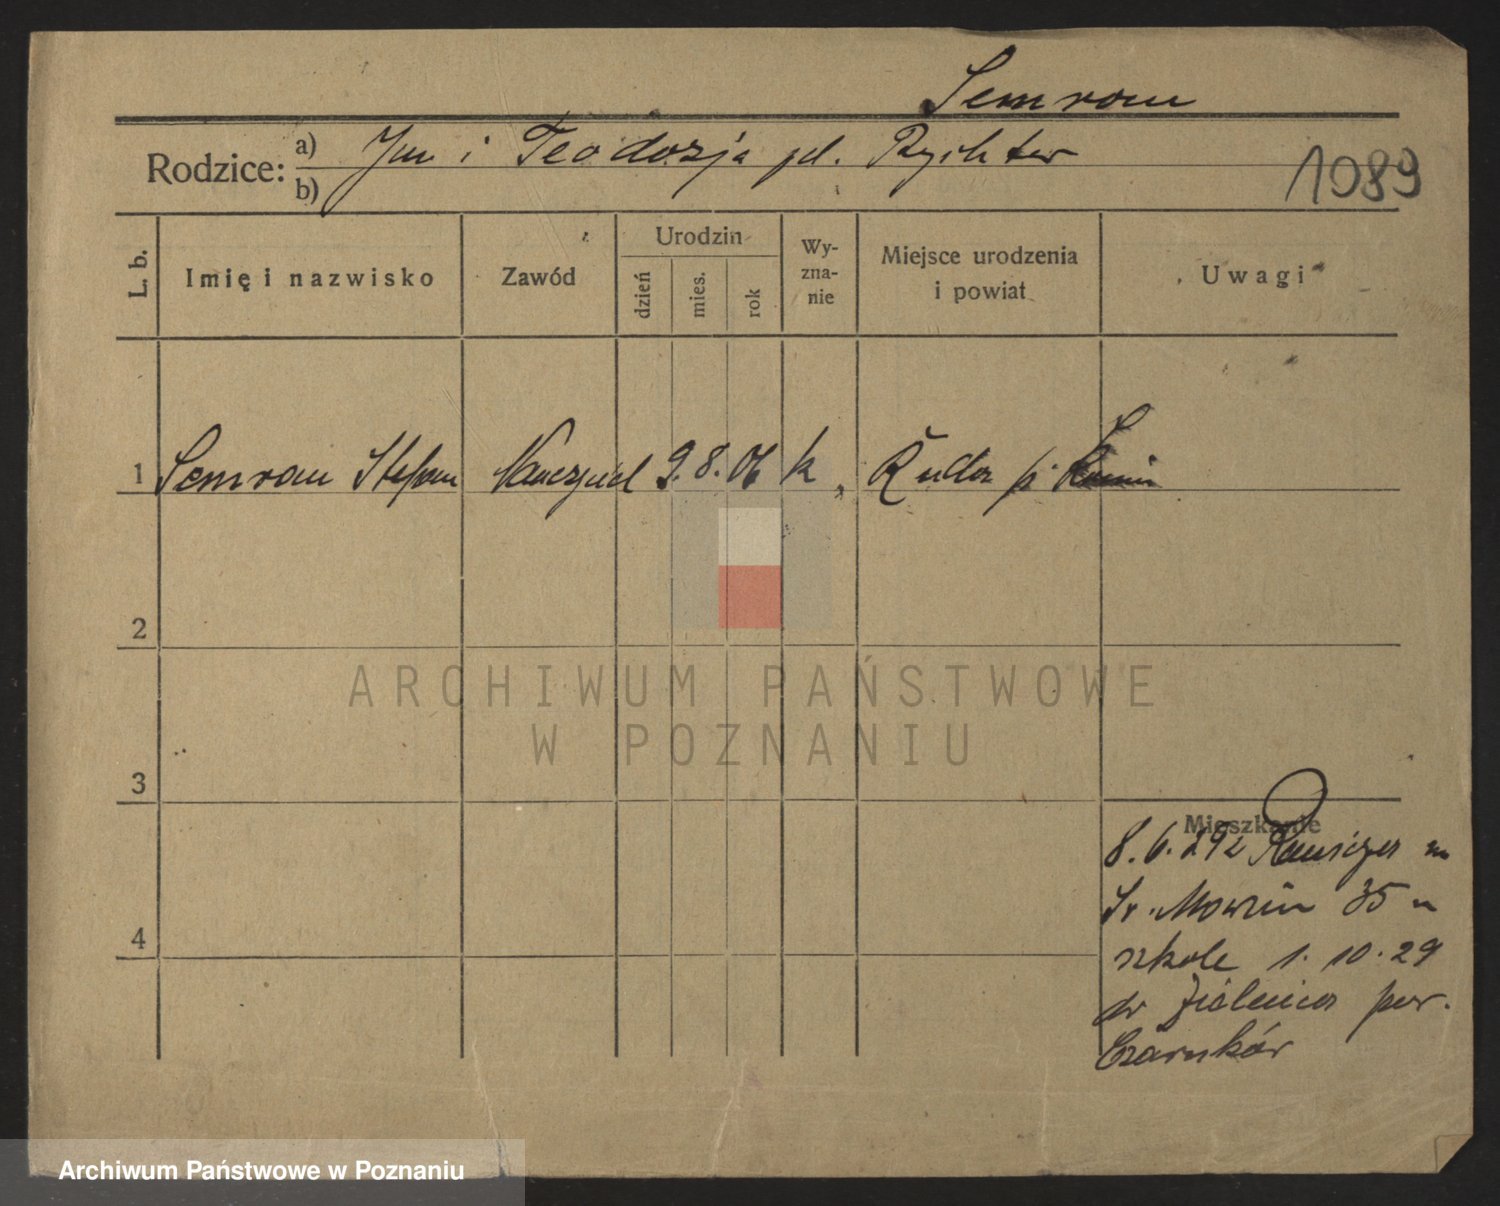 Semrau
Rodzice: a) Jan i Teodozja zd. Rychter
b)
1089
L. b. Imię i nazwisko Zawód Urodzin dzień mies. rok Wy-zna-nie Miejsce urodzenia i powiat Uwagi
1 Semrau Stefan Nauczyciel 9. 8. 06 k Ruda p.
2
ARCHIWUM PAŃSTWOWE
W POZNANIU
3
Mieszkanie
8. 6. 29 z
Św. Marcin 35 w
4
szkole 1. 10. 29
do pow.
Czarnków
Archiwum Państwowe w Poznaniu